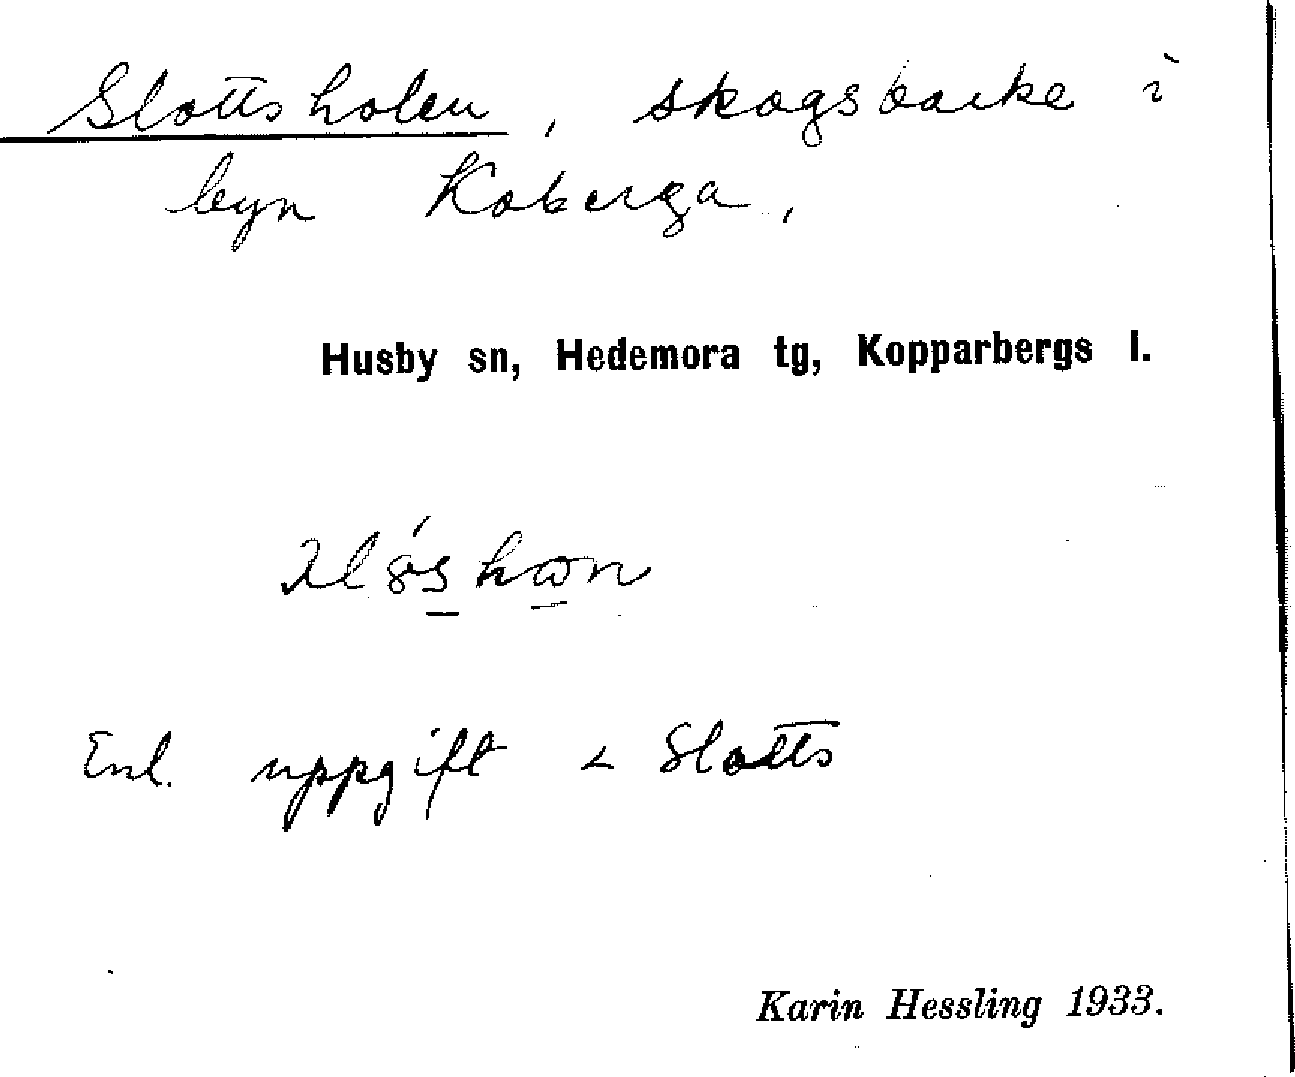 Slottsholen, skogsbacke i
byn Koberga,
Husby sn, Hedemora tg, Kopparbergs l.
Enl. uppgift < Slotts
Karin Hessling 1933.